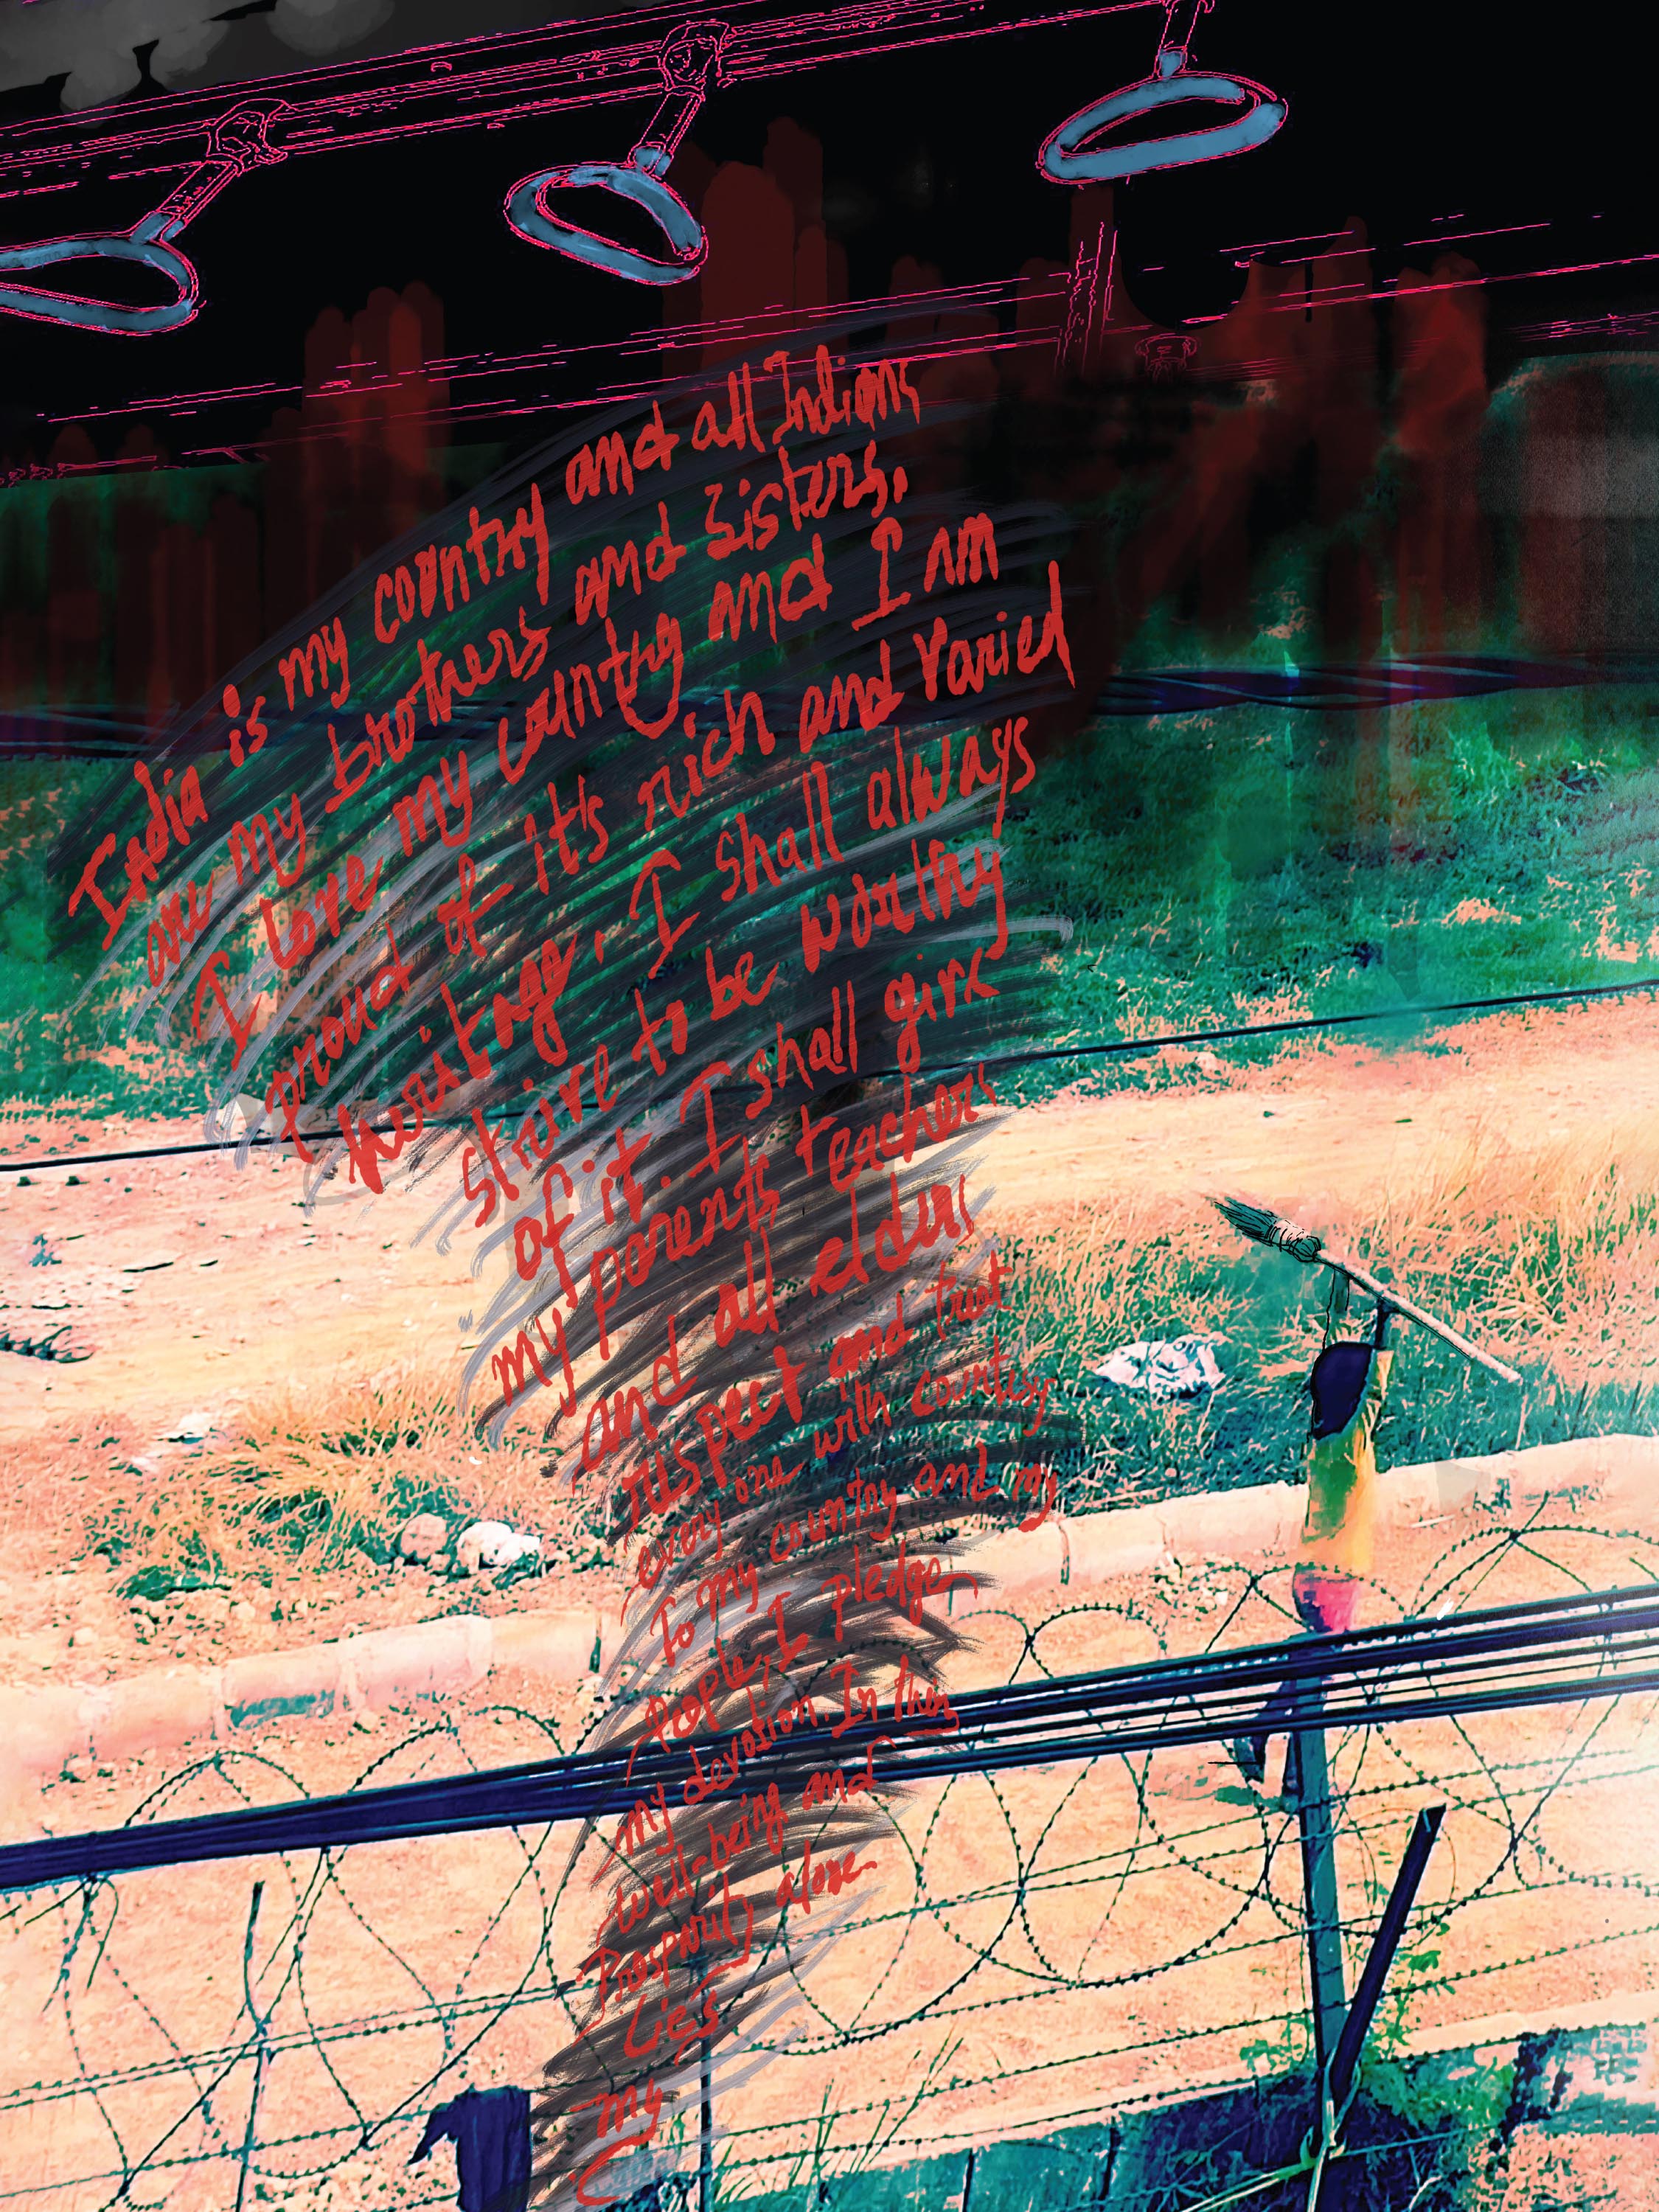 India is my country and all Indians
are my brothers and sisters.
I love my country and I am
proud of it's rich and varied
heritage. I shall always
strive to be worthy
of it. I shall give
my parents teachers
and all elders
respect and treat
every one with courtesy
To my country and my
People, I pledge
my devotion In their
well-being and
Prosperity alone
Lies
my